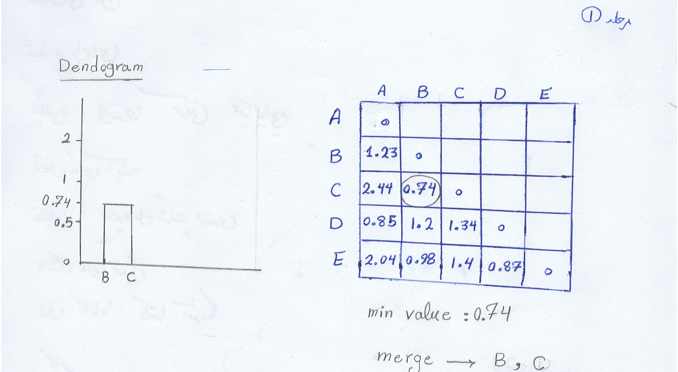 مرحله ①
Dendogram
2
1
0.74
0.5
0
B C
A B C D E
A 0
B 1.23 0
C 2.44 0.74 0
D 0.85 1.2 1.34 0
E 2.04 0.98 1.4 0.87 0
min value : 0.74
merge → B , C